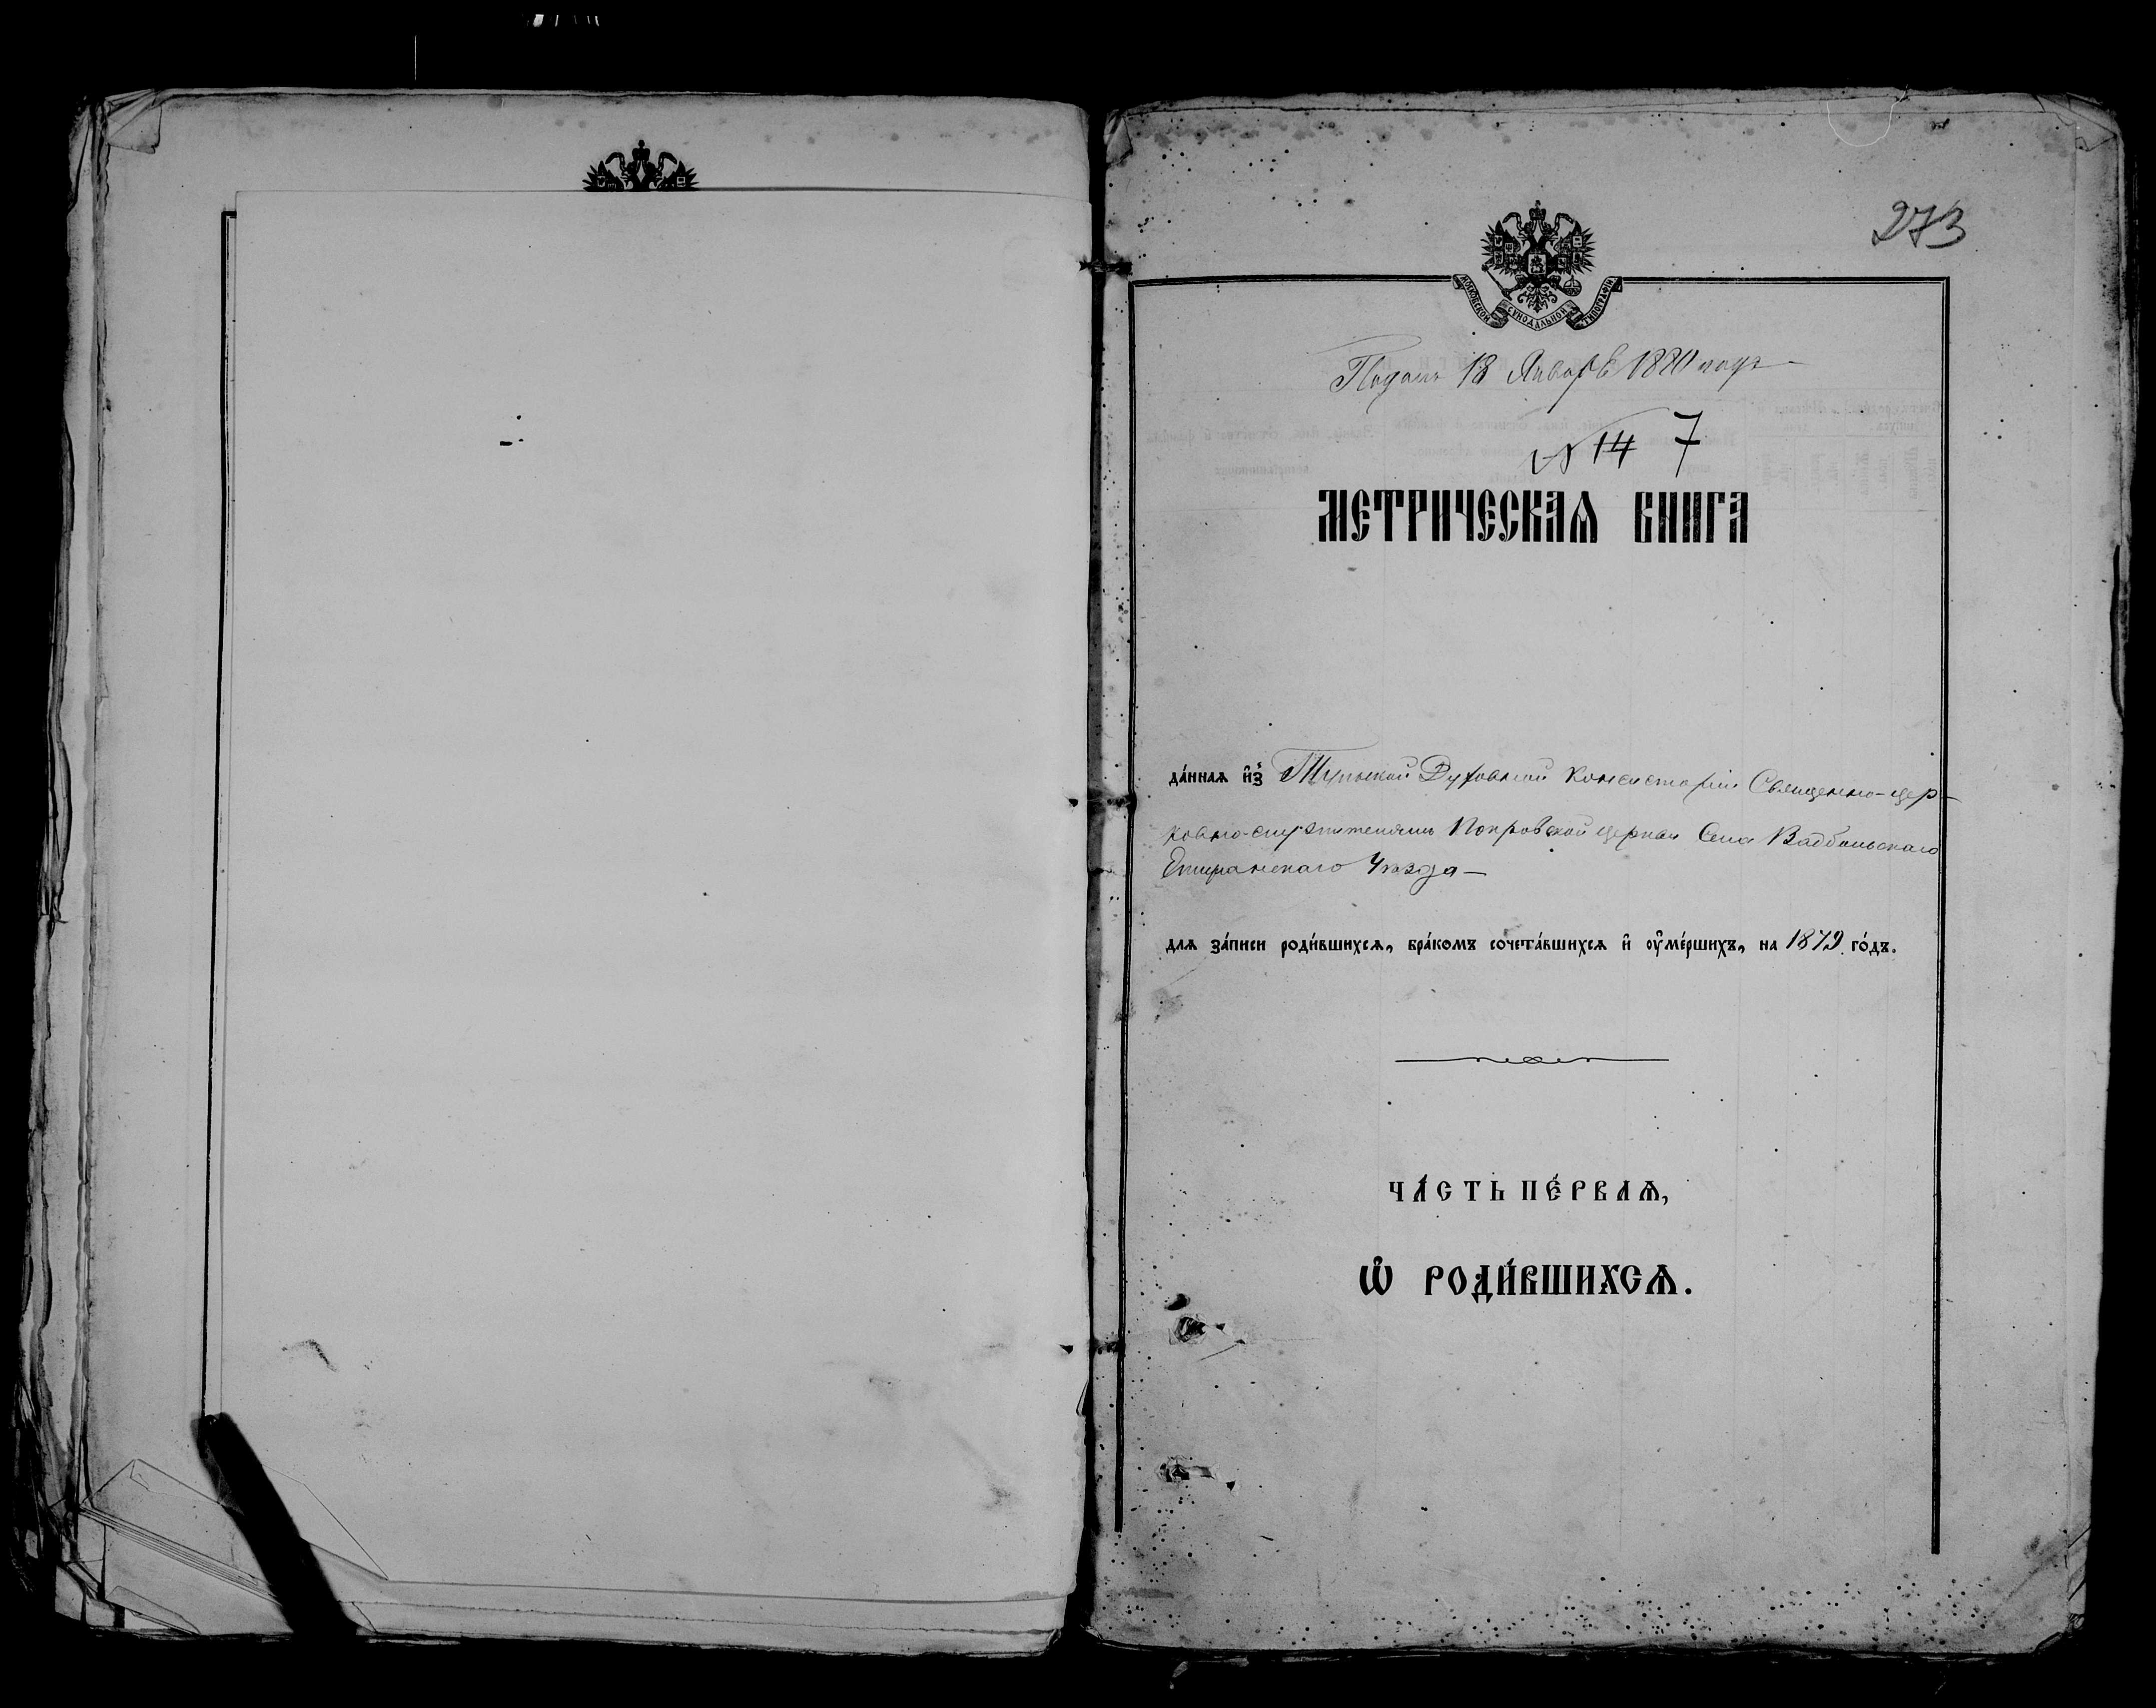 273
МОСКОВСКОЙ СѴНОДАЛЬНОЙ ТИПОГРАФІИ
18 Январѣ 1880 года
№ 14 7
МЕТРИЧЕСКАѦ КНИГА
да́ннаѧ и҆з̾ Тульской Духовной Консисторіи Священно-цер-
ковно-служителямъ Покровской церкви Села Вадбольскаго
Епифанскаго Уѣзда —
длѧ за́писи роди́вшихсѧ, бра́комъ сочета́вшихсѧ и҆ ᲂу҆ме́ршихъ, на 1879 го́дъ.
ЧА́СТЬ ПЕ́РВАѦ,
Ѽ РОДИ́ВШИХСѦ.